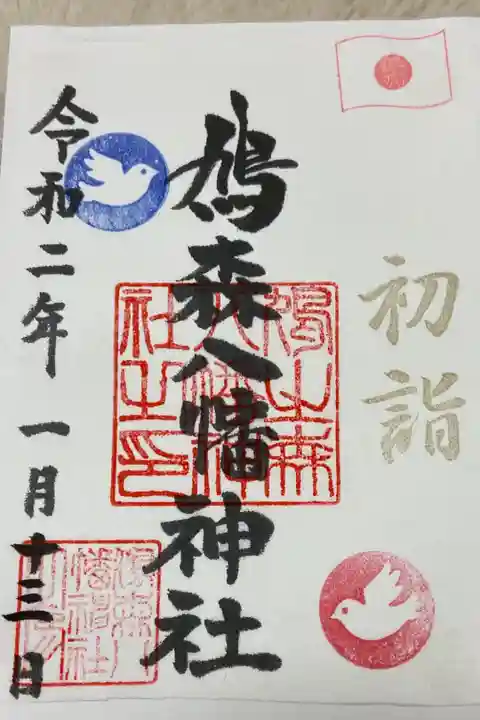 初詣
鳩森八幡神社
鳩之森八幡神社之印
令和二年 一月十三日